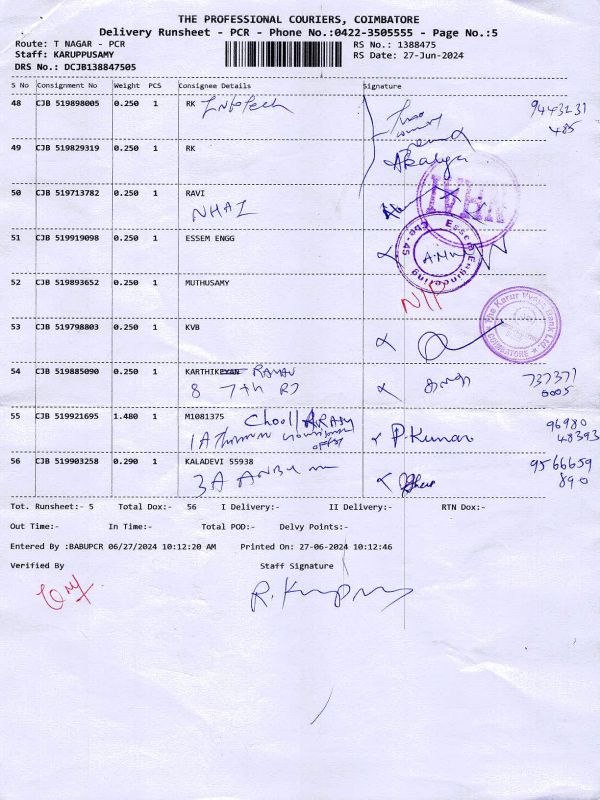 THE PROFESSIONAL COURIERS, COIMBATORE
Delivery Runsheet - PCR - Phone No.:0422-3505555 - Page No.:5
Route: T NAGAR - PCR
RS No.: 1388475
Staff: KARUPPUSAMY
RS Date: 27-Jun-2024
DRS No.: DCJB138847505
S No Consignment No Weight PCS Consignee Details Signature
48 CJB 519898005 0.250 1 RK Infotech 9443131
485
49 CJB 519829319 0.250 1 RK Akalya
50 CJB 519713782 0.250 1 RAVI
NHAI
51 CJB 519919098 0.250 1 ESSEM ENGG
Essem Engineering
Cbe-45
52 CJB 519893652 0.250 1 MUTHUSAMY
53 CJB 519798803 0.250 1 KVB
The Karur Vysya Bank Ltd.
COIMBATORE
54 CJB 519885090 0.250 1 KARTHIKEYAN RAMAN 737371
8 7th RD 0005
55 CJB 519921695 1.480 1 M1081375 P. Kumar 96980
48393
56 CJB 519903258 0.290 1 KALADEVI 55938 9566659
3A 890
Tot. Runsheet:- 5 Total Dox:- 56 I Delivery:- II Delivery:- RTN Dox:-
Out Time:- In Time:- Total POD:- Delvy Points:-
Entered By :BABUPCR 06/27/2024 10:12:20 AM Printed On: 27-06-2024 10:12:46
Verified By Staff Signature